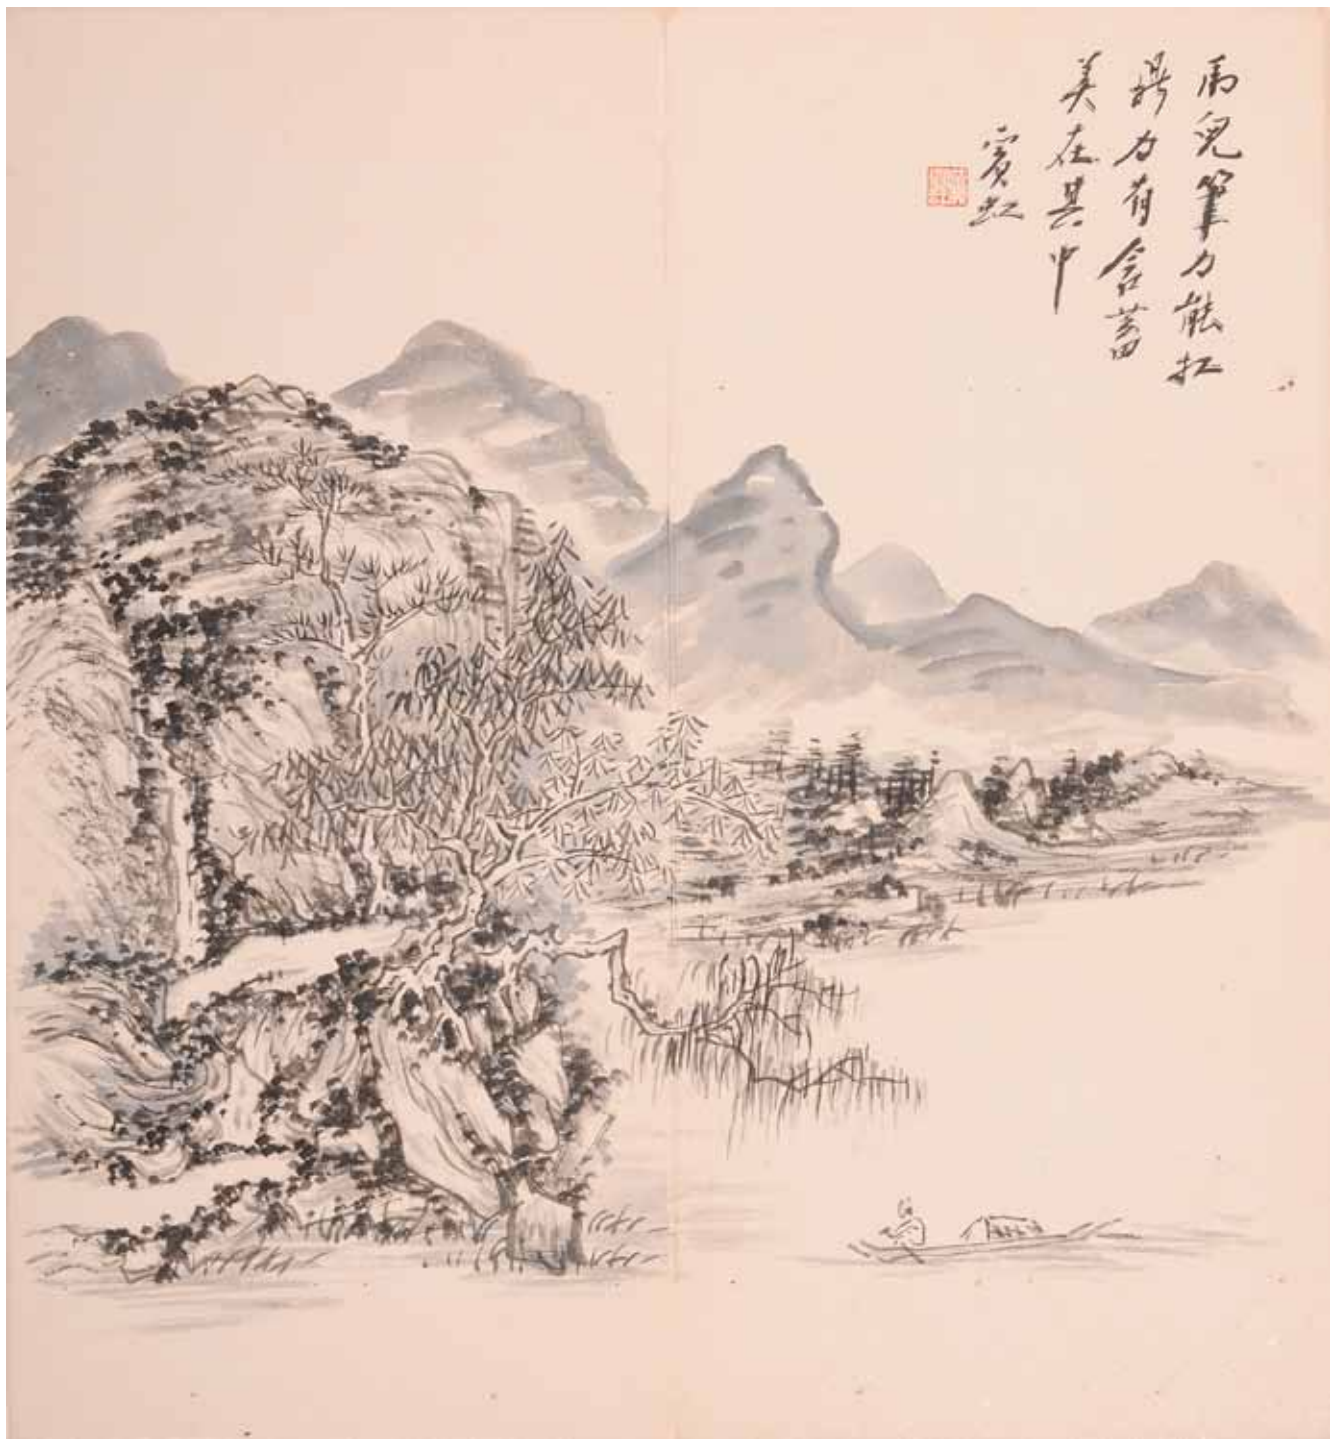 虎兒筆力能扛
鼎為有含蓄
美在其中
賓虹